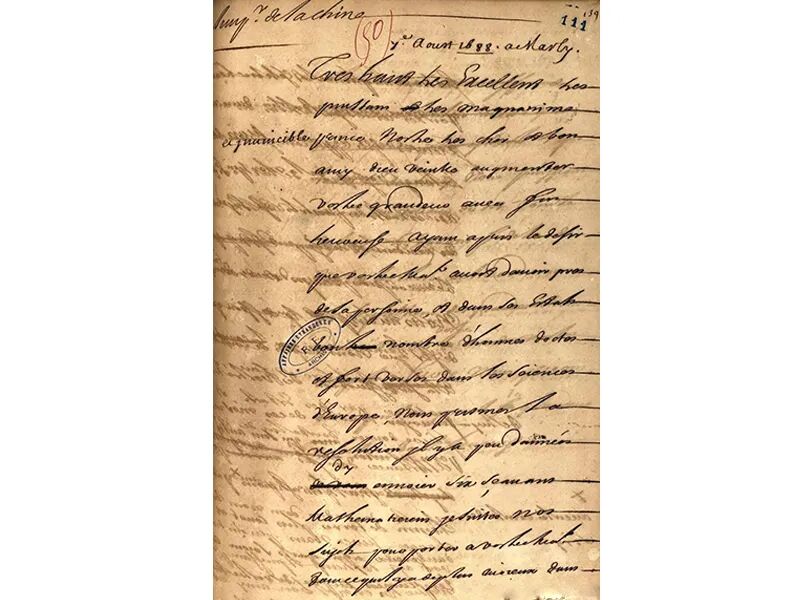 Emp.r de la chine
(50)
111
139
7.e Aoust 1688. a Marly.
Tres haut tres Excellent tres
puissant tres magnanime
et invincible prince Nostre tres cher et bon
amy dieu veuille augmenter
vostre grandeur avec fin
heureuse ayant apris le desir
que vostre Ma.té avoit d'avoir pres
de sa personne, et dans ses Estats
bon nombre d'hommes doctes
et fort versez dans les sciences
d'Europe, Nous prismes la
resolution il y a peu d'années
d'y
envoier six sçavans
Mathematiciens jesuites nos
sujets pour porter a vostre Ma.té
dans
AFFAIRES ETRANGERES
ARCHIVES